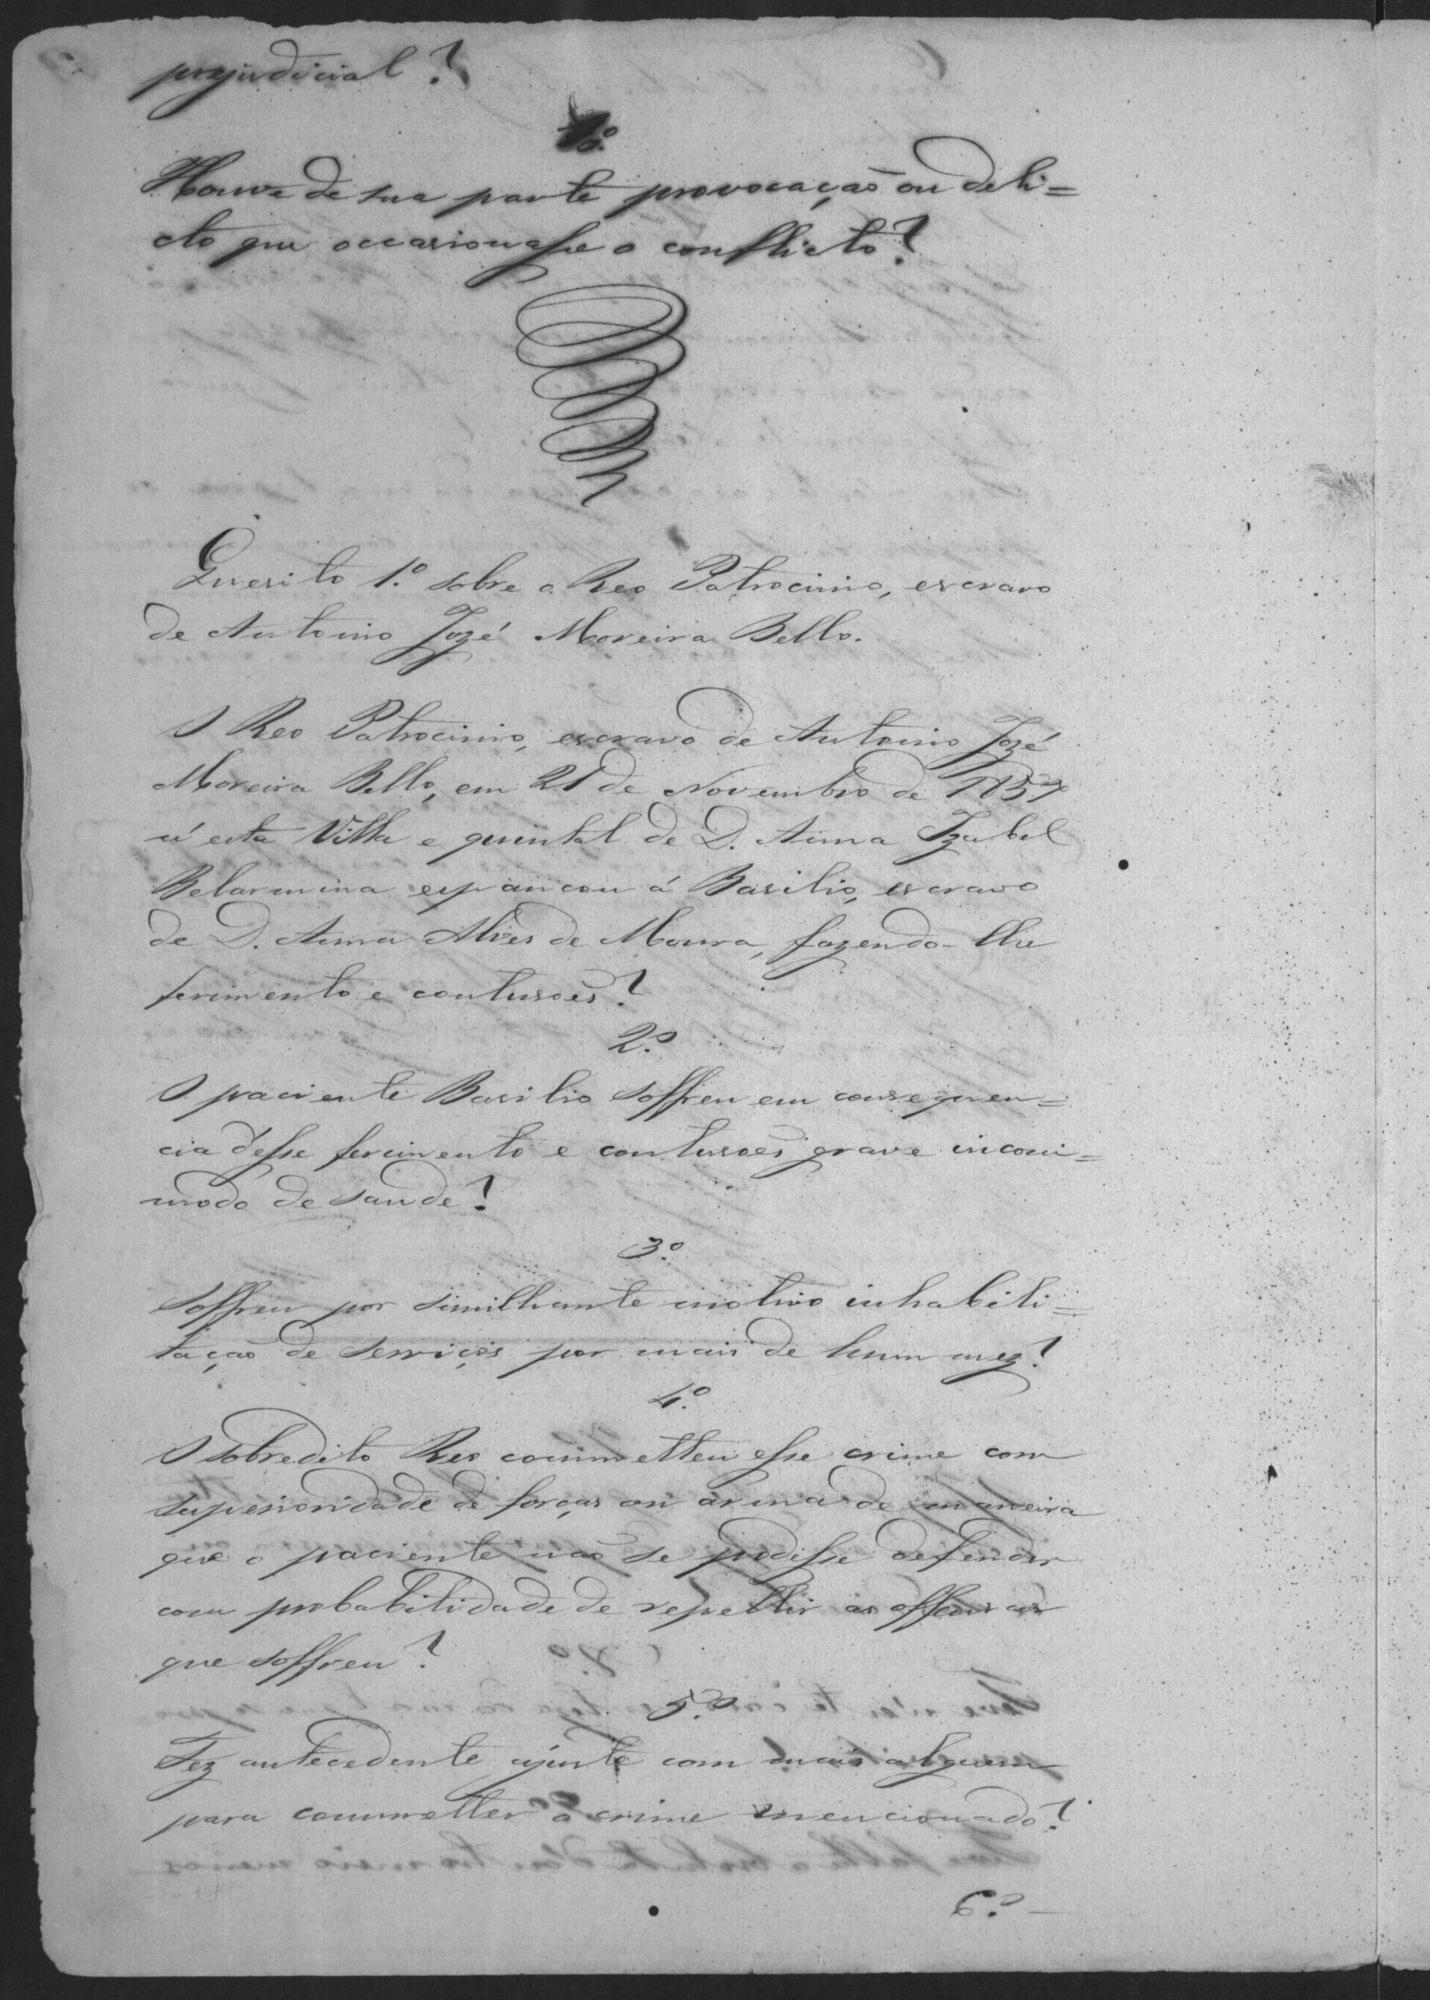 prejudicial?
Houve de sua parte provocação ou deli=
cto que occasionasse o conflicto?
Quesito 1.º sobre o Reo Patrocinio, escravo
de Antonio Jozé Moreira Bello.
O Reo Patrocinio, escravo de Antonio Jozé
Moreira Bello, em 21 de Novembro de 1857
n'esta Villa e quintal de D. Anna Izabel
Belarmina espancou á Basilio, escravo
de D. Anna Alves de Moura, fazendo-lhe
ferimento e contusoês?
2.º
O paciente Basilio soffreu em consequen=
cia d'esse ferimento e contusoês grave incom=
modo de saude?
3.º
Soffreu por similhante motivo inhabili=
tação de serviços por mais de hum mez?
4.º
O sobredito Reo commetteu esse crime com
superioridade de forças ou arma de maneira
que o paciente não se podesse defender
com probabilidade de repellir as offensas
que soffreu?
5.º
Fez antecedente ajuste com mais alguem
para commetter o crime mencionado?
6.º